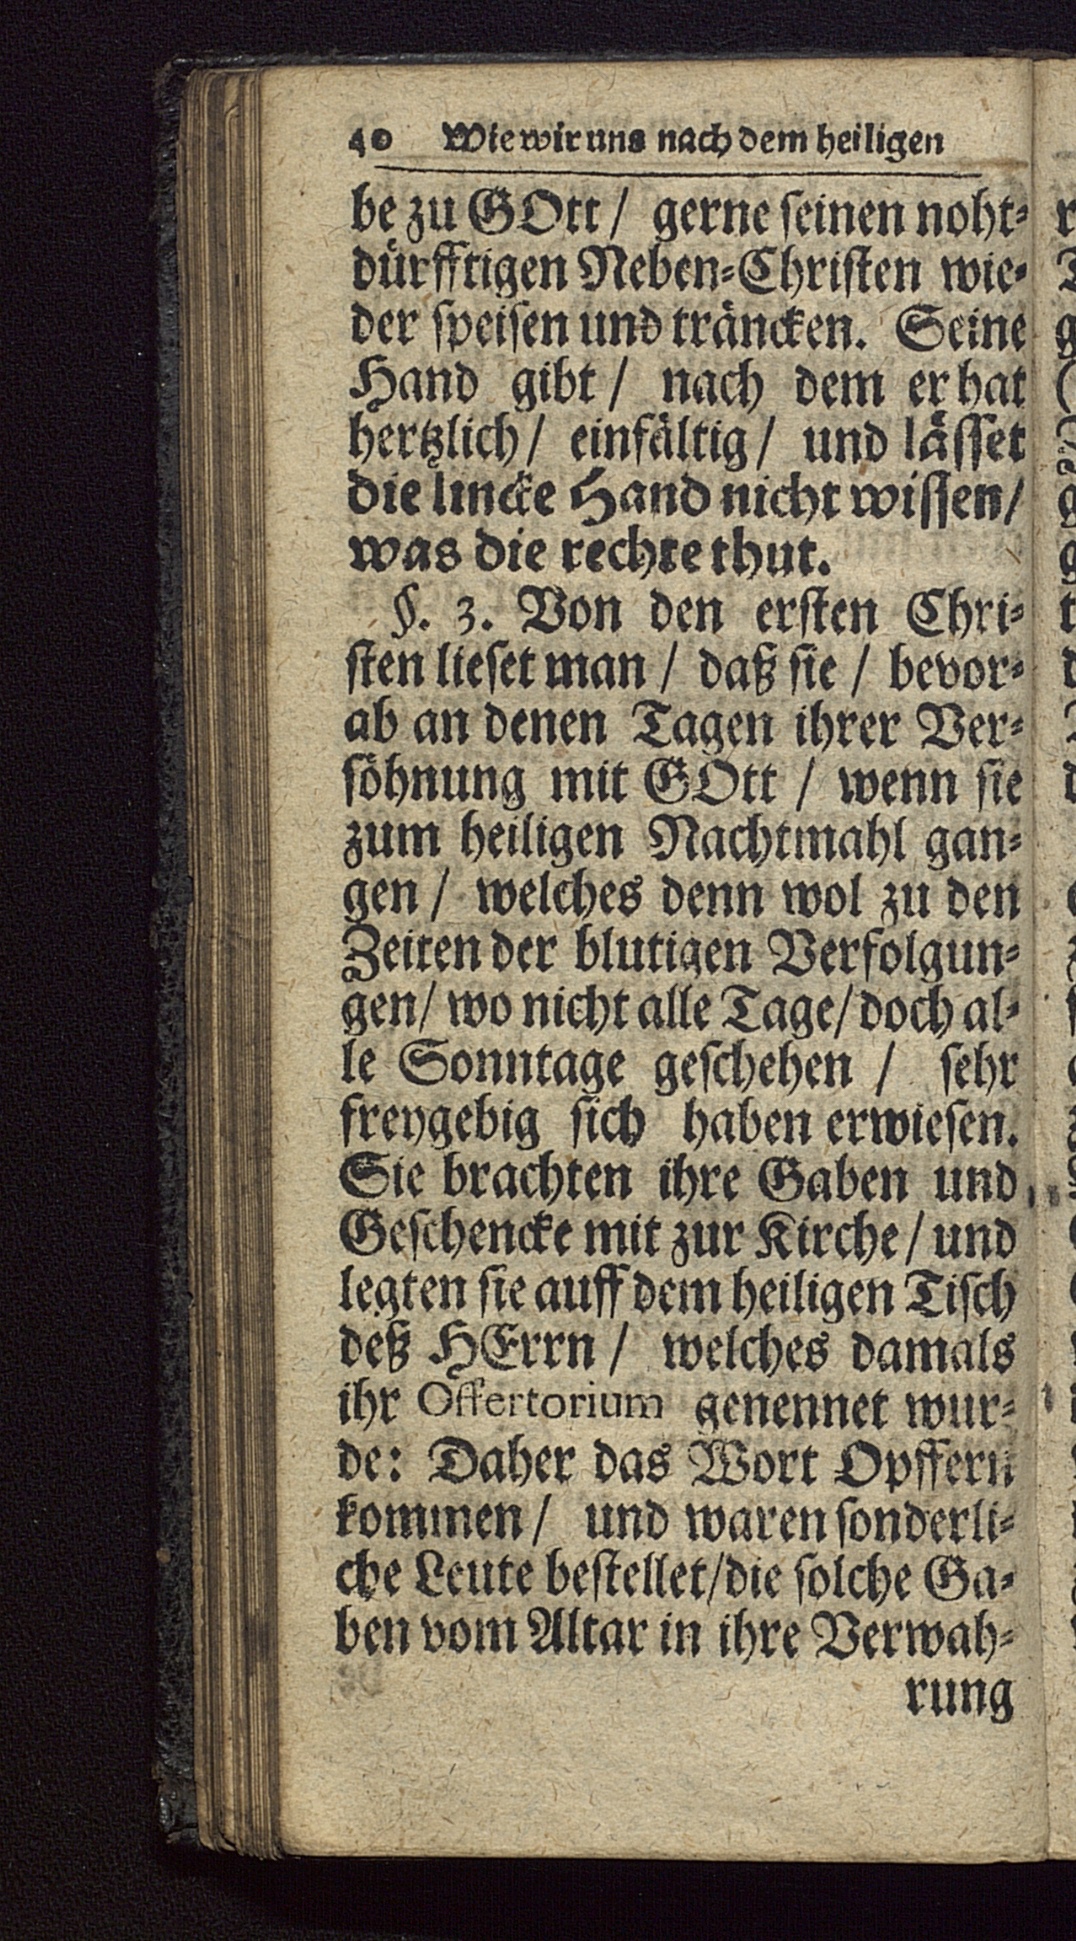 40 Wie wir uns nach dem heiligen
be zu GOtt / gerne seinen noht-
dürfftigen Neben-Christen wie-
der speisen und träncken. Seine
Hand gibt / nach dem er hat
hertzlich / einfältig / und lässet
die lincke Hand nicht wissen /
was die rechte thut.
§. 3. Von den ersten Chri-
sten lieset man / daß sie / bevor-
ab an denen Tagen ihrer Ver-
söhnung mit GOtt / wenn sie
zum heiligen Nachtmahl gan-
gen / welches denn wol zu den
Zeiten der blutigen Verfolgun-
gen / wo nicht alle Tage / doch al-
le Sonntage geschehen / sehr
freygebig sich haben erwiesen.
Sie brachten ihre Gaben und
Geschencke mit zur Kirche / und
legten sie auff dem heiligen Tisch
deß HErrn / welches damals
ihr Offertorium genennet wur-
de: Daher das Wort Opffern
kommen / und waren sonderli-
che Leute bestellet / die solche Ga-
ben vom Altar in ihre Verwah-
rung